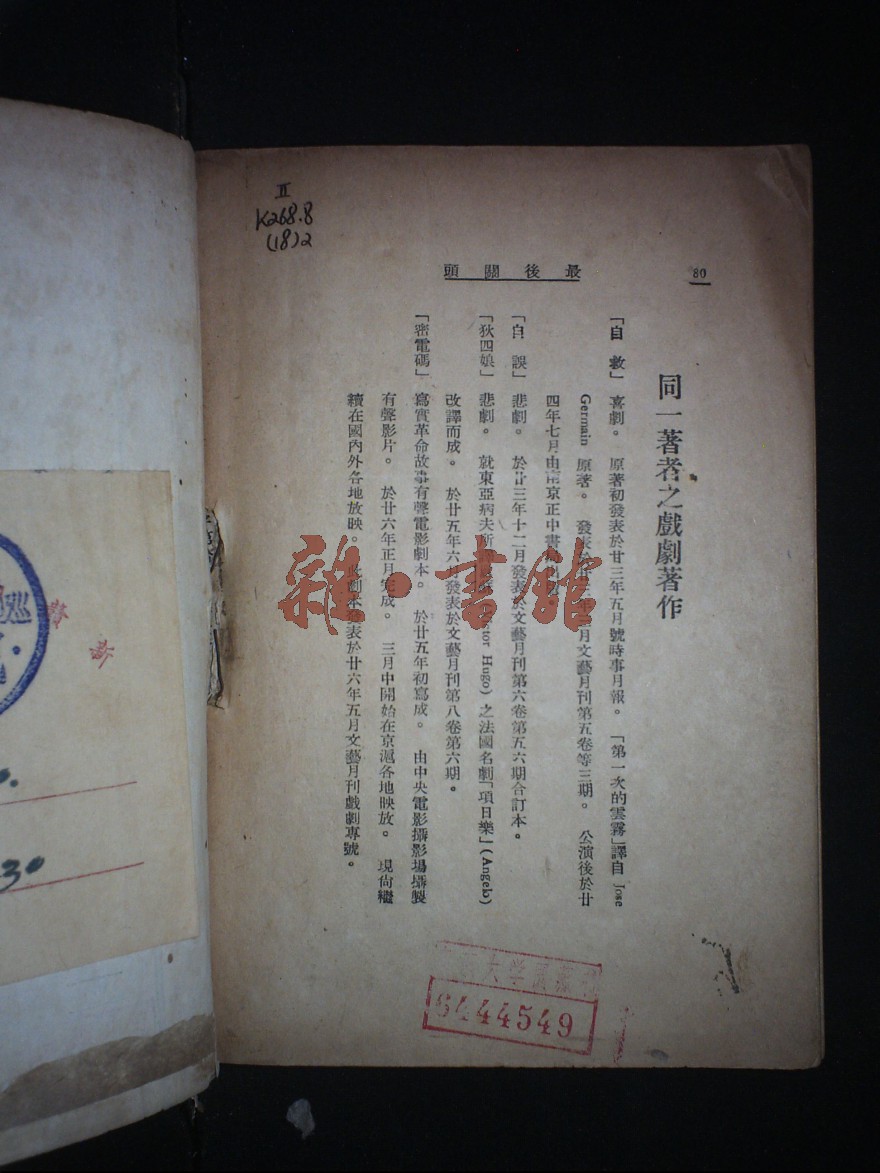 II
K268.8
(18)2
80
最後關頭
同一著者之戲劇著作
「自救」喜劇。原著初發表於廿三年五月號時事月報。「第一次的雲霧」譯自 Jose
Germain 原著。發表於廿三年 月文藝月刊第五卷等三期。公演後於廿
四年七月由南京正中書局
「自誤」悲劇。於廿三年十二月發表於文藝月刊第六卷第五六期合訂本。
「狄四娘」悲劇。就東亞病夫所 tor Hugo) 之法國名劇「項日樂」(Angelo)
改譯而成。於廿五年六月發表於文藝月刊第八卷第六期。
「密電碼」寫實革命故事有聲電影劇本。於廿五年初寫成。由中央電影攝影場攝製
有聲影片。於廿六年正月完成。三月中開始在京滬各地映放。現尙繼
續在國內外各地放映。此劇本發表於廿六年五月文藝月刊戲劇專號。
雜·書館
6444549
30